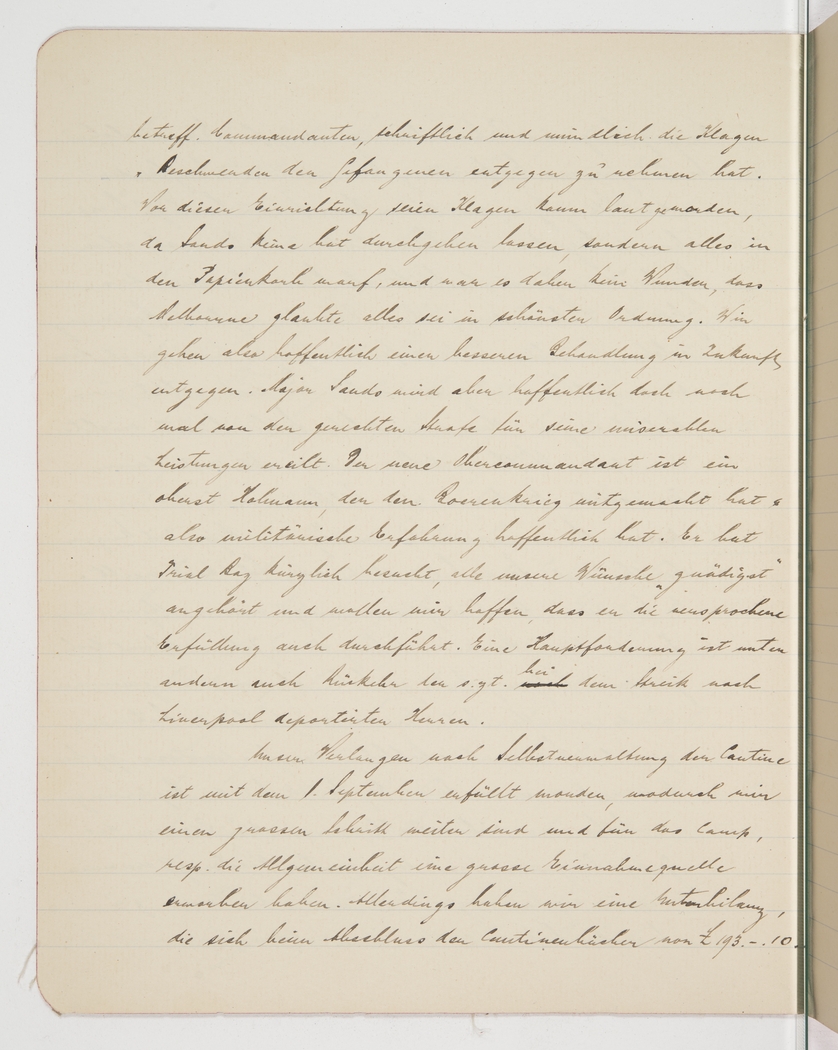 betreff. Commandanten, schriftlich und mündlich die Klagen
Beschwerden der Gefangenen entgegen zu nehmen hat.
Vor dieser Einrichtung seien Klagen kaum laut geworden,
da Sands keine hat durchgehen lassen, sondern alles in
den Papierkorb warf, und war es daher kein Wunder, dass
Melbourne glaubte alles sei in schönster Ordnung. Wir
gehen also hoffentlich einer besseren Behandlung in Zukunft
entgegen. Major Sands wird aber hoffentlich doch noch
mal von der gerechten Strafe für seine miserablen
Leistungen ereilt. Der neue Obercommandant ist ein
oberst Holmann, der den Boerenkrieg mitgemacht hat &
also militärische Erfahrung hoffentlich hat. Er hat
Trial Bay kürzlich besucht, alle unsere Wünsche „gnädigst"
angehört und wollen wir hoffen, dass er die versprochene
Erfüllung auch durchführt. Eine Hauptforderung ist unter
andern auch Rückkehr der s.zt. bei dem Streik nach
Liverpool deportirten Herren.
Unser Verlangen nach Selbstverwaltung der Cantine
ist mit dem 1. September erfüllt worden, wodurch wir
einen grossen Schritt weiter sind und für das Camp,
resp. die Allgemeinheit eine grosse Einnahmequelle
erworben haben. Allerdings haben wir eine Unterbilanz,
die sich beim Abschluss der Cantinenbücher von £ 193.-.10.